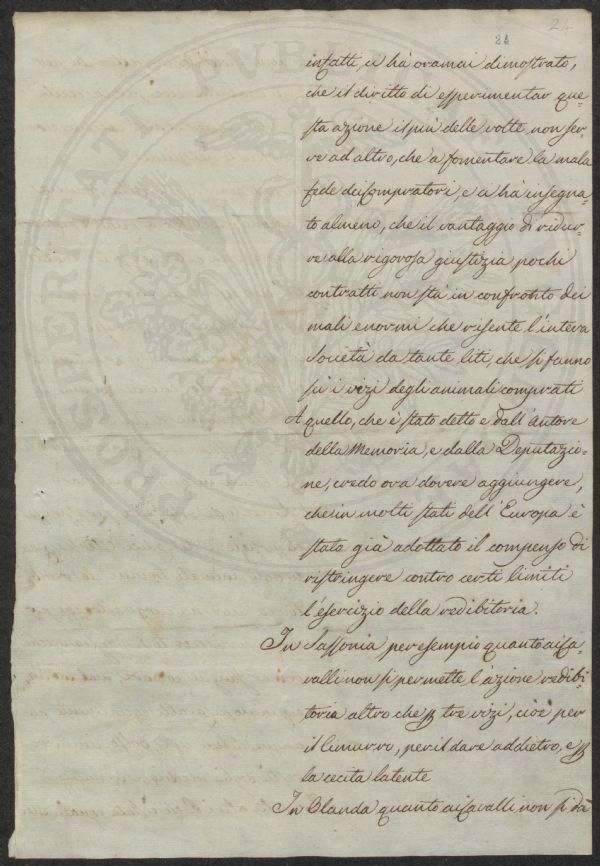 24
24
infatti, ci hà oramai dimostrato,
che il diritto di esperimentar que-
sta azione il più delle volte non ser-
ve ad altro, che a fomentare la mala
fede dei Compratori, e ci hà insegna-
to almeno, che il vantaggio di ridur-
re alla rigorosa giustizia pochi
contratti non stà in confronto dei
mali enormi che risente l'intera
Società da tante liti, che si fanno
sù i vizi degli animali comprati
A quello, che è stato detto e dall'Autore
della Memoria, e dalla Deputazio-
ne, credo ora dovere aggiungere,
che in molti stati dell'Europa è
stato già adottato il compenso di
ristringere contro certi limiti
l'esercizio della redibitoria.
In Sassonia per esempio quanto ai Ca-
valli non si permette l'azione redibi-
toria altro che p tre vizi, cioè per
il Cimurro, per il dare addietro, e p
la cecità latente
In Olanda quanto ai Cavalli non si dà
PROSPERITATI PVB